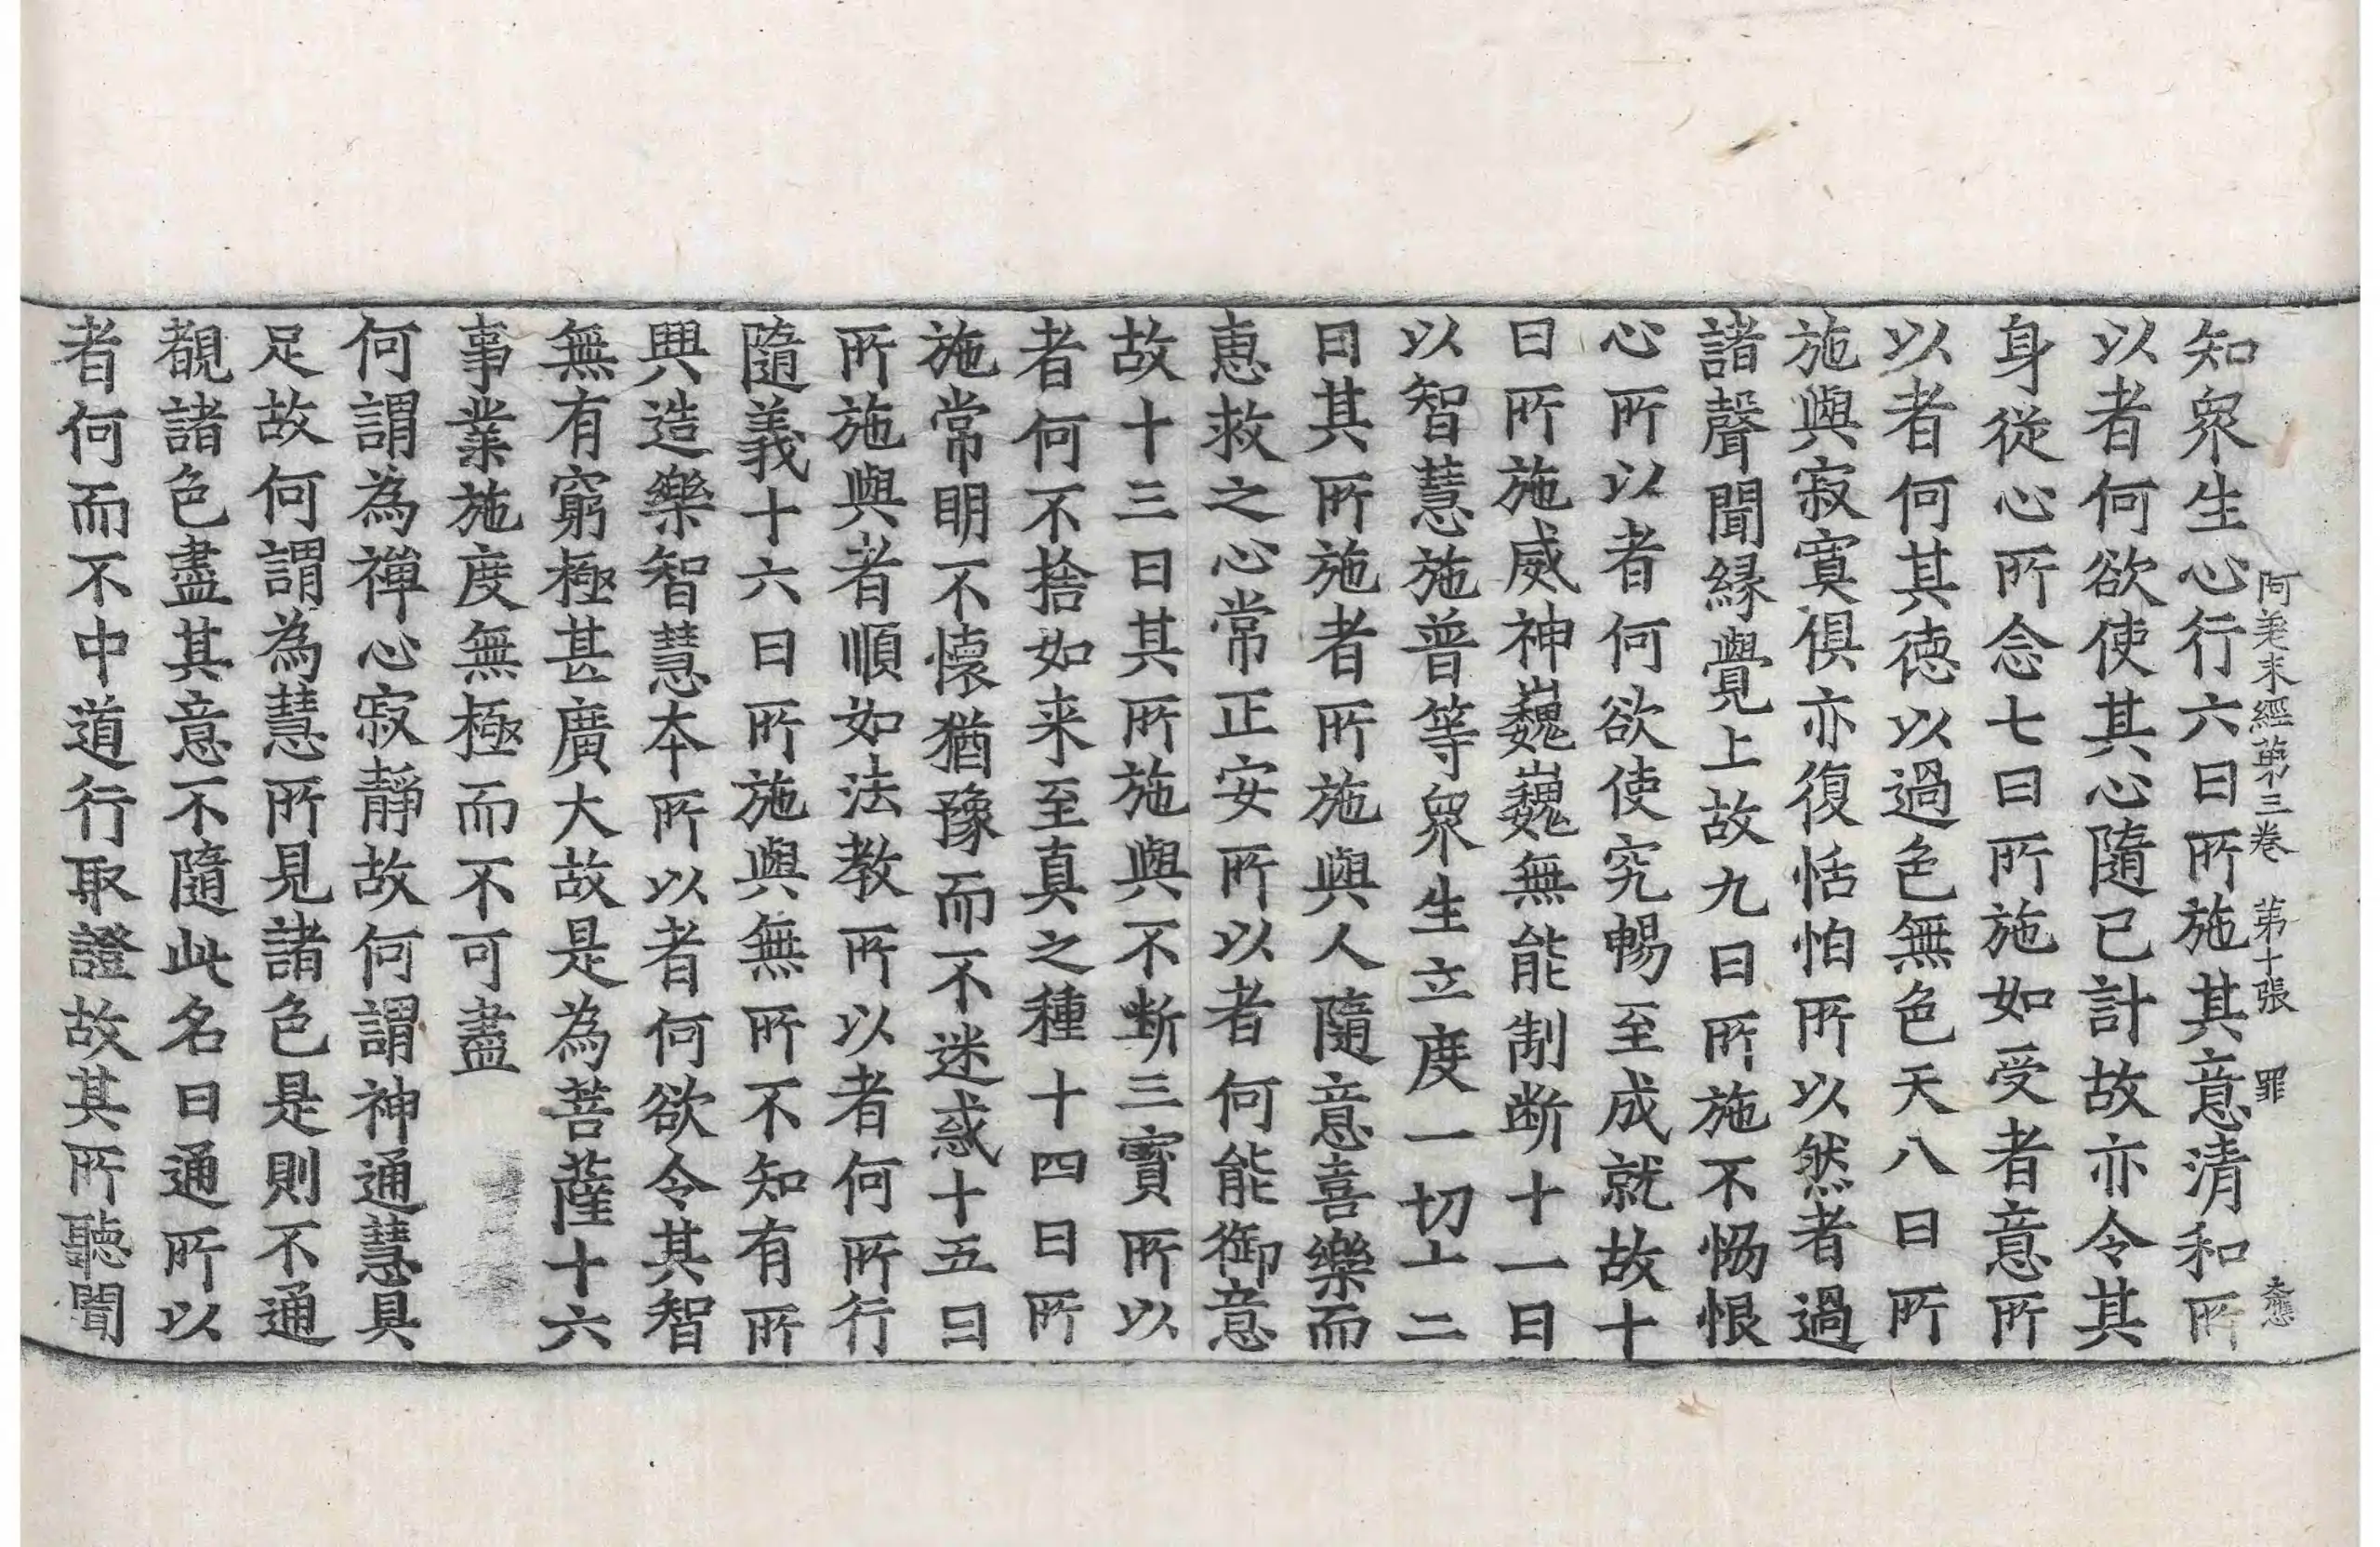 阿差末經第三卷　第十張　罪
知衆生心行六曰所施其意清和所
以者何欲使其心隨已計故亦令其
身從心所念七曰所施如受者意所
以者何其德以過色無色天八曰所
施與寂寞俱亦復恬怕所以然者過
諸聲聞緣覺上故九曰所施不惱恨
心所以者何欲使究暢至成就故十
曰所施威神巍巍無能制断十一曰
以智慧施普等衆生立度一切十二
曰其所施者所施與人隨意喜樂而
惠救之心常正安所以者何能御意
故十三曰其所施與不断三寶所以
者何不捨如来至真之種十四曰所
施常明不懷猶豫而不迷惑十五曰
所施與者順如法教所以者何所行
隨義十六曰所施與無所不知有所
興造樂智慧本所以者何欲令其智
無有窮極甚廣大故是為菩薩十六
事業施度無極而不可盡
何謂為禪心寂靜故何謂神通慧具
足故何謂為慧所見諸色是則不通
覩諸色盡其意不隨此名曰通所以
者何而不中道行取證故其所聽聞